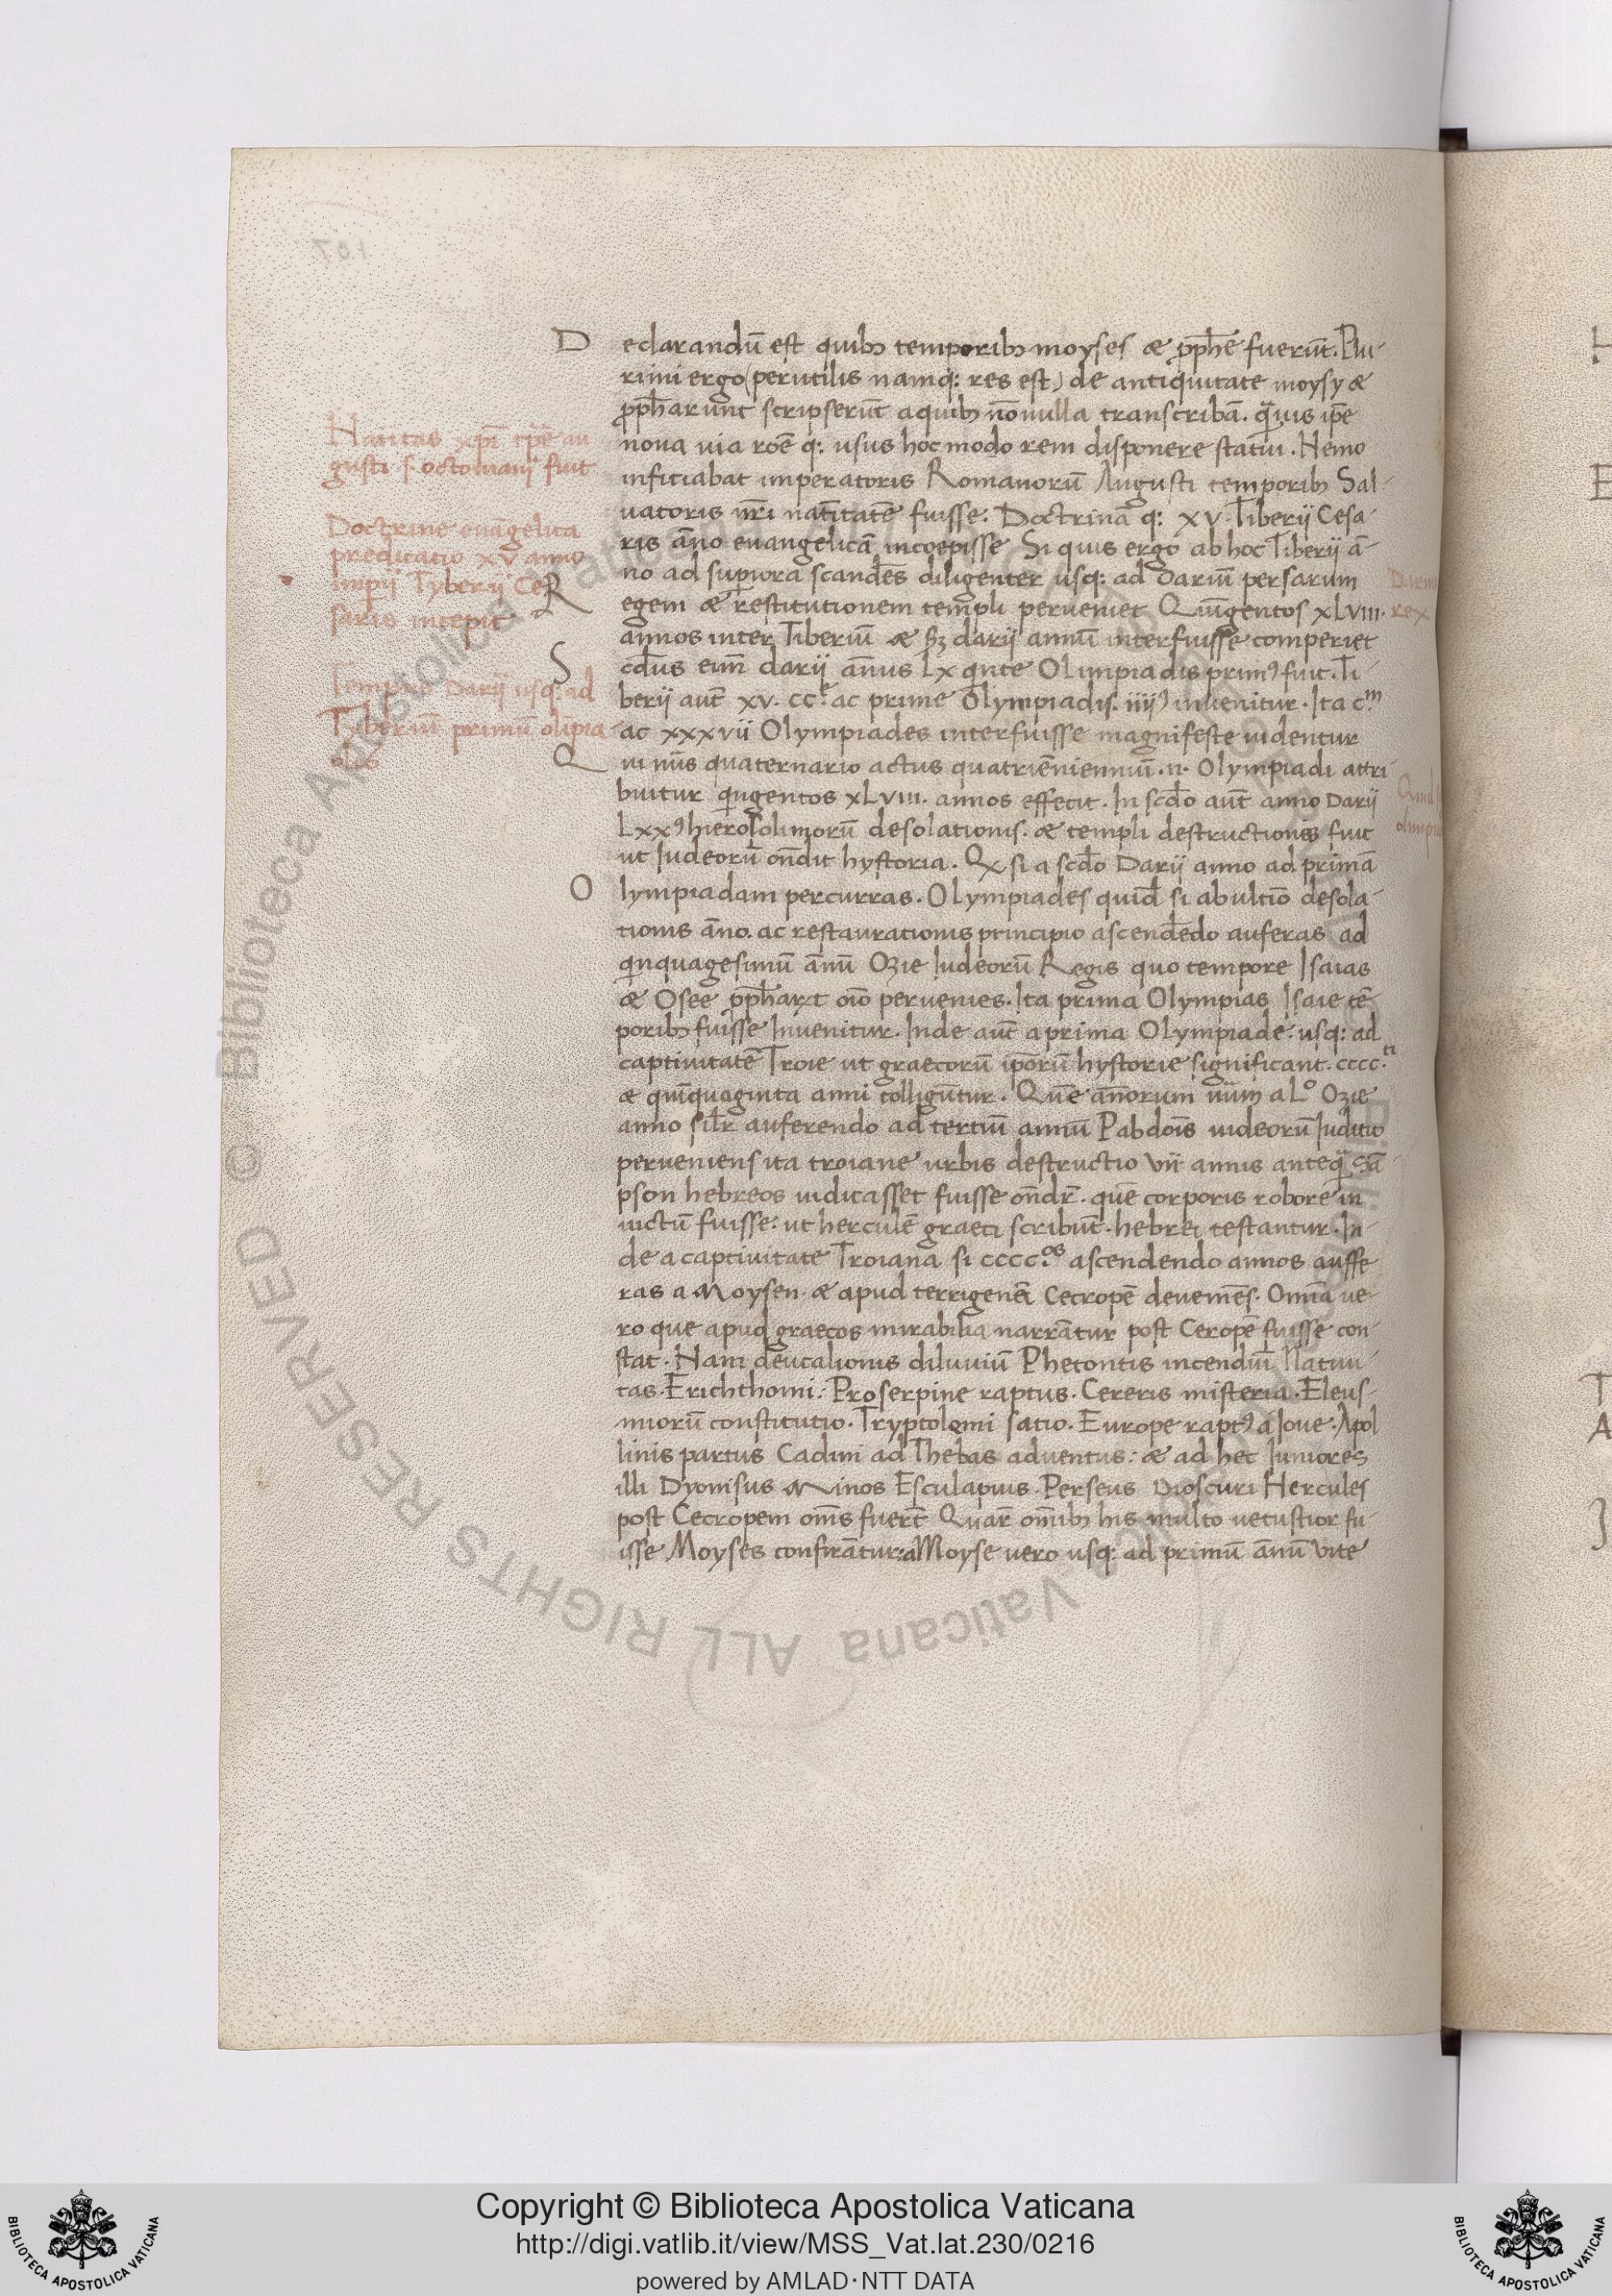 Declarandū est quibꝫ temporibꝫ moyses æ ꝓph̄e fuerūt. Plu-
rimi ergo (perutilis namqꝫ res est) de antiquitate moysy æ
ꝓph̄arunt scripserūt a quibꝫ nōnulla transcribā. qͣuis ip̄e
noua uia rōē qꝫ usus hoc modo rem disponere statui. Nemo
inficiabat imperatoris Romanorū Augusti temporibꝫ Sal-
uatoris nr̄i natiūtatē fuisse. Doctrinā qꝫ XV. Tiberij Cesa-
ris āno euangelicā incoepisse Si quis ergo ab hoc Tiberij ā-
no ad supiora scandēs diligenter usqꝫ ad Dariū persarum
Regem æ restitutionem templi perueniet Quīgentos XLVIII.
annos inter Tiberiū æ darij annū interfuisse comperiet
Scd̄us eim̄ darij ānus LX qnte Olimpiadis primꝰ fuit. Ti-
berij aūt XV. CCͤ. ac prime Olympiadis. iiijꝰ inuenitur. Ita cͫ.
ac xxxvii Olympiades interfuisse magnifeste uidentur
Qui nūs quaternario actus quatriēniennium .n. Olympiadi attri-
buitur qͥngentos XLVIII. annos effecit. In scd̄o aūt anno Darij
LXXꝰ hierosolimorū desolationis. æ templi destructionis fuit
ut Iudeorū on̄dit hystoria. Qꝫ si a scd̄o Darij anno ad primā
Olympiadam percurras. Olympiades quid̄ si ab ultīo desola-
tionis āno. ac restaurationis principio ascendēdo auferas ad
qͥnquagesimū ānū Ozie Iudeorū Regis quo tempore Isaias
æ Osee ꝓph̄art oīo peruenies. Ita prima Olympias Isaie tē-
poribꝫ fuisse Inuenitur. Inde aūt a prima Olympiade. usqꝫ ad
captiuitatē Troie ut graecorū ip̄orū hystorie significant. CCCC.ti
æ quīquaginta anni colligūtur. Quē annorum nūm a Lº Ozie
anno sil̄r auferendo ad tertiū annū Pabdoīs uideorū Iuditio
perueniens ita troiane urbis destructio VII annis anteqͣ Sā-
pson hebreos iudicasset fuisse on̄dr̄. quē corporis robore in
uictū fuisse. ut herculē graeci scribūt. hebrei testantur. In-
de a captiuitate Troiana si CCCC.ºˢ ascendendo annos auffe
ras a Moysen. æ apud terrigenā Cecropē deuenies. Omīa ue-
ro que apud graecos mirabilia narrātur post Ceropē fuisse con-
stat. Nam deucalionis diluuiū Phetontis incendiū Natiui-
tas. Erichthomi. Proserpine raptus. Cereris misteria. Eleus-
niorū constitutio. Tryptolemi satio. Europe raptꝰ a Ioue. Apol
linis partus Cadmi ad Thebas aduentus: æ ad hec Iuniores
illi Dyonisus Minos Esculapius. Perseus Dioscuri Hercules
post Cecropem om̄s fuert̄ Quar̄ om̄ibꝫ his multo uetustior fu-
isse Moyses confirātur: a Moyse uero usqꝫ ad primū ānū vite
Natitas xp̄i tp̄e au
gusti s. octouiani fuit
Doctrine euāgelica
predicatio XV anno
imp̄ij Tyberij Ce
saris incepit
Tempus Darij usqꝫ ad
Tyberiū primū olīpia-
Darius
rex
Copyright © Biblioteca Apostolica Vaticana
http://digi.vatlib.it/view/MSS_Vat.lat.230/0216
powered by AMLAD·NTT DATA